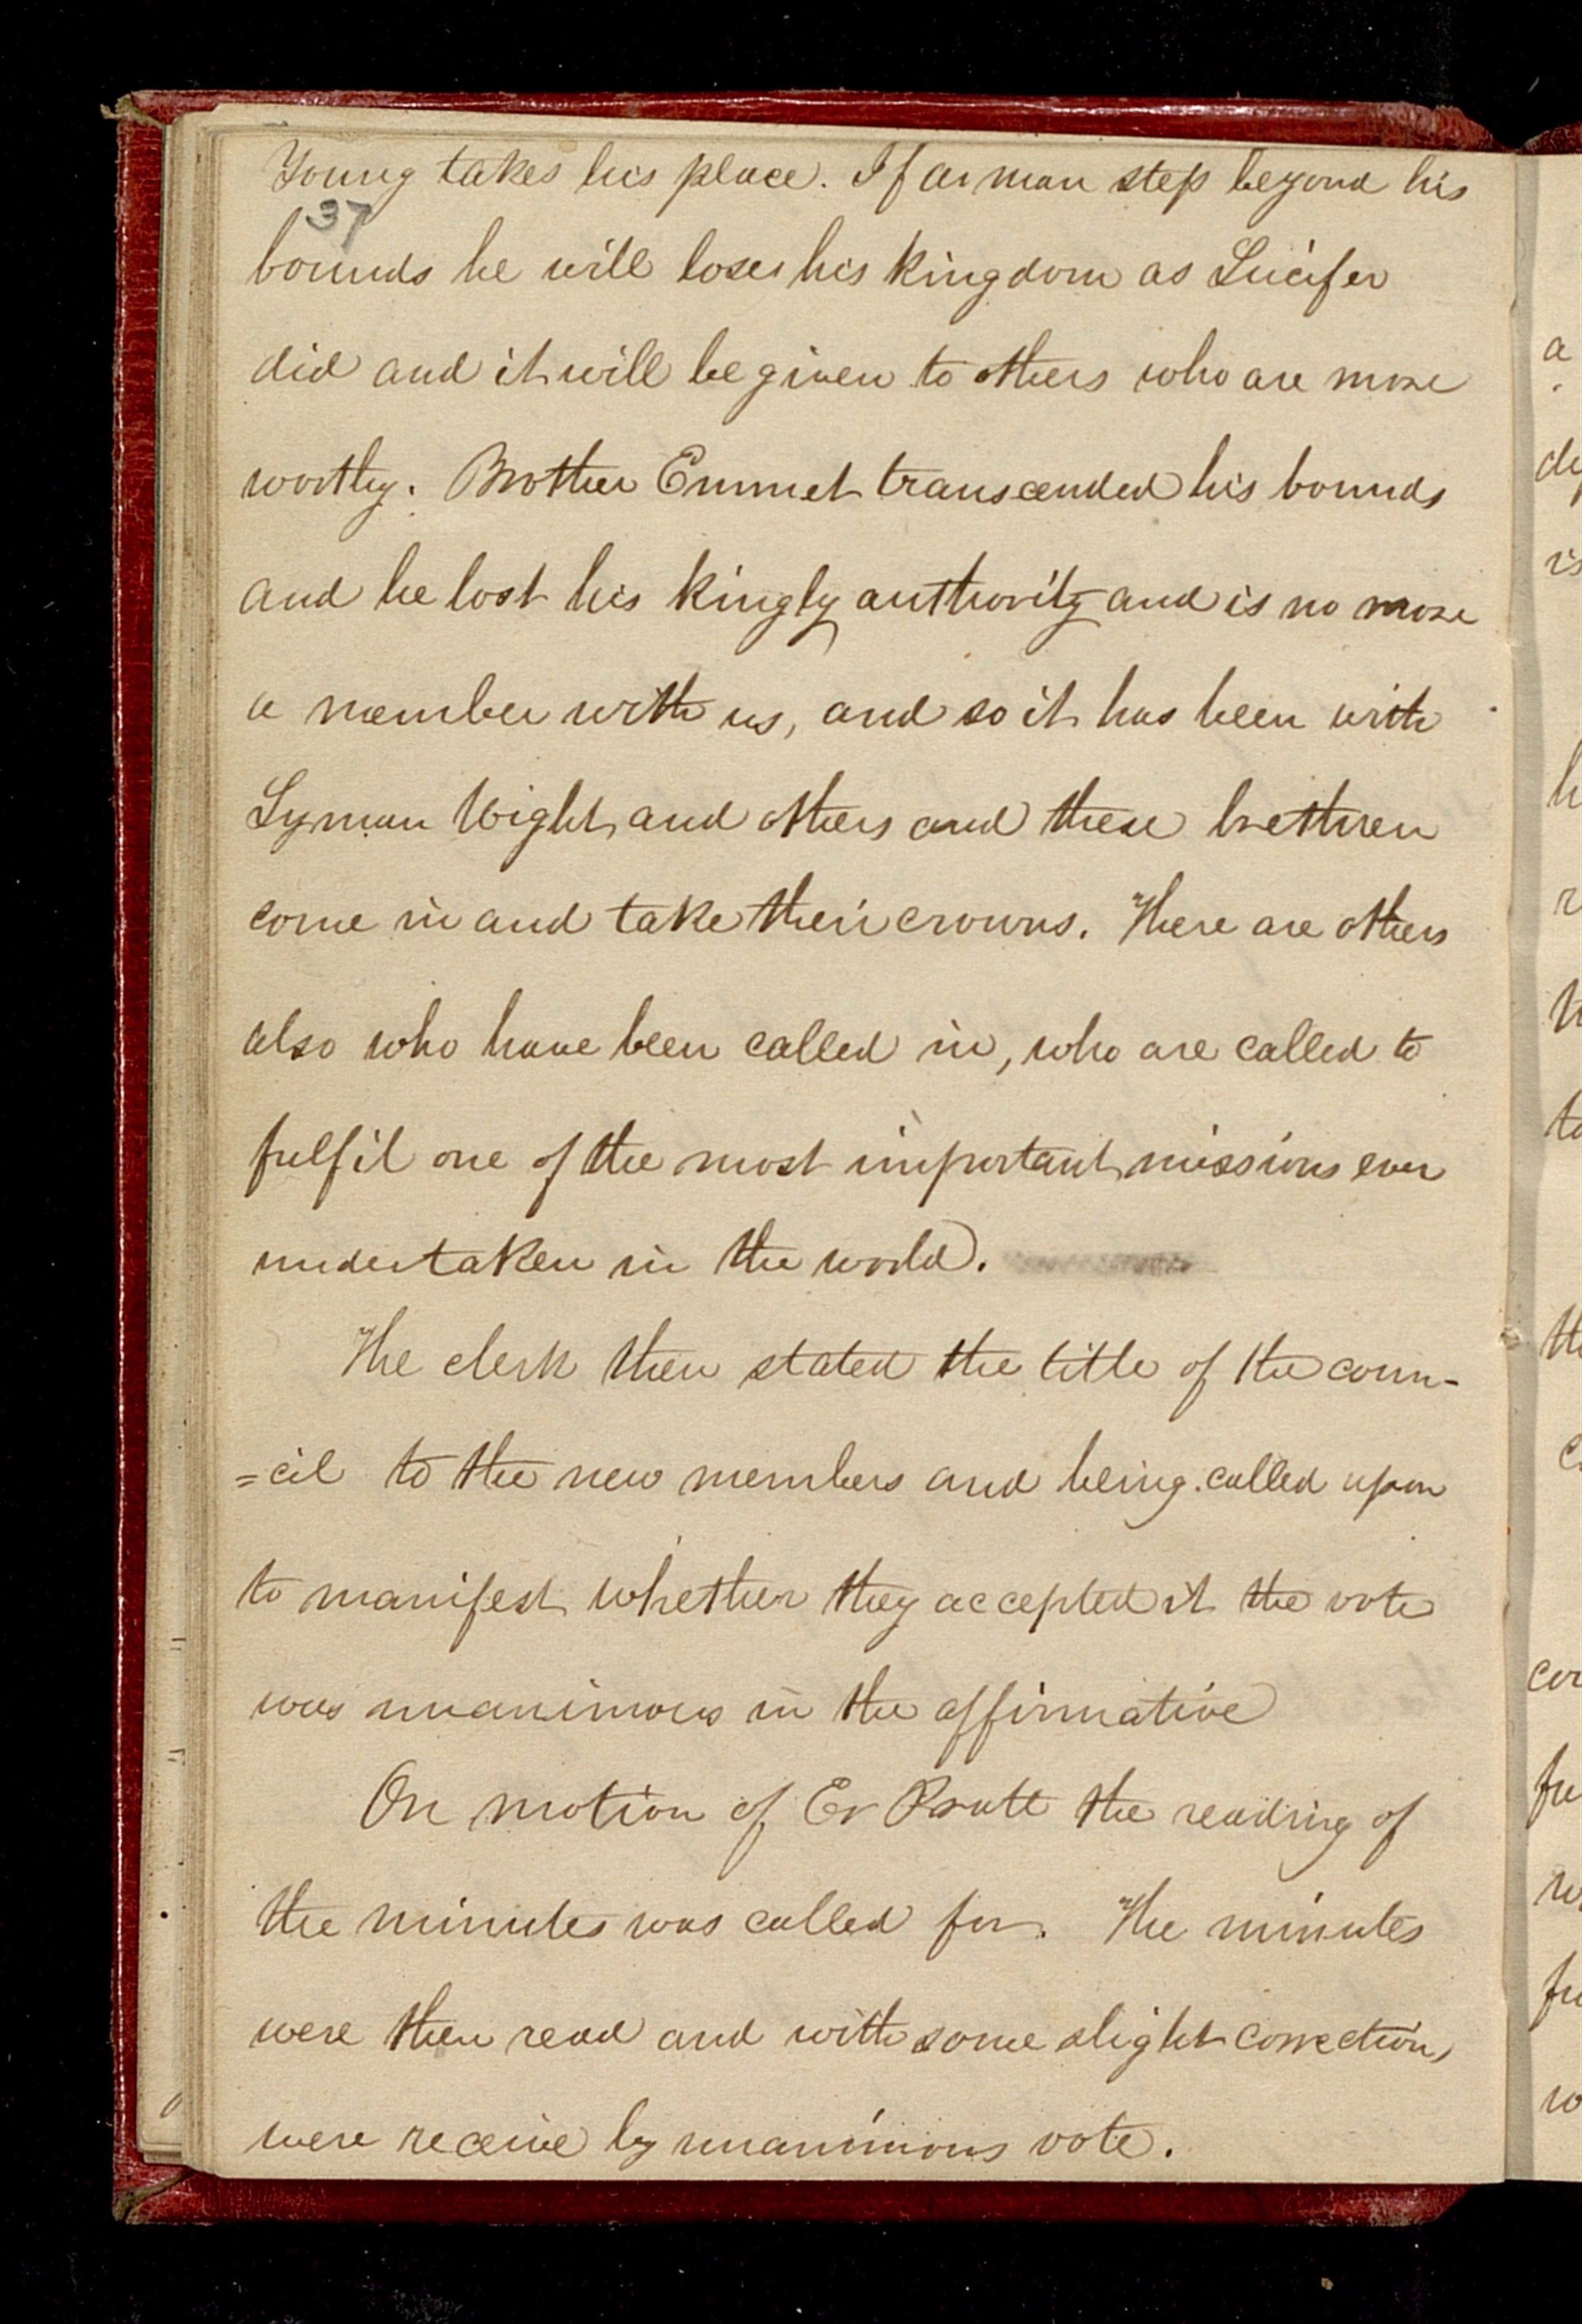 Young takes his place. If a man step beyond his
37
bounds he will loses his kingdom as Lucifer
did and it will be given to others who are more
worthy. Brother Emmet transcended his bounds
and he lost his kingly authority and is no more
a member with us, and so it has been with
Lyman Wight and others and these brethren
come in and take their crowns. There are others
also who have been called in, who are called to
fulfil one of the most important missions ever
undertaken in the world.
The clerk then stated the title of the coun-
=cil to the new members and being called upon
to manifest whether they accepted it the vote
was unanimous in the affirmative
On motion of Er Pratt the reading of
the minutes was called for. The minutes
were then read and with some slight corrections
were receive by unanimous vote.